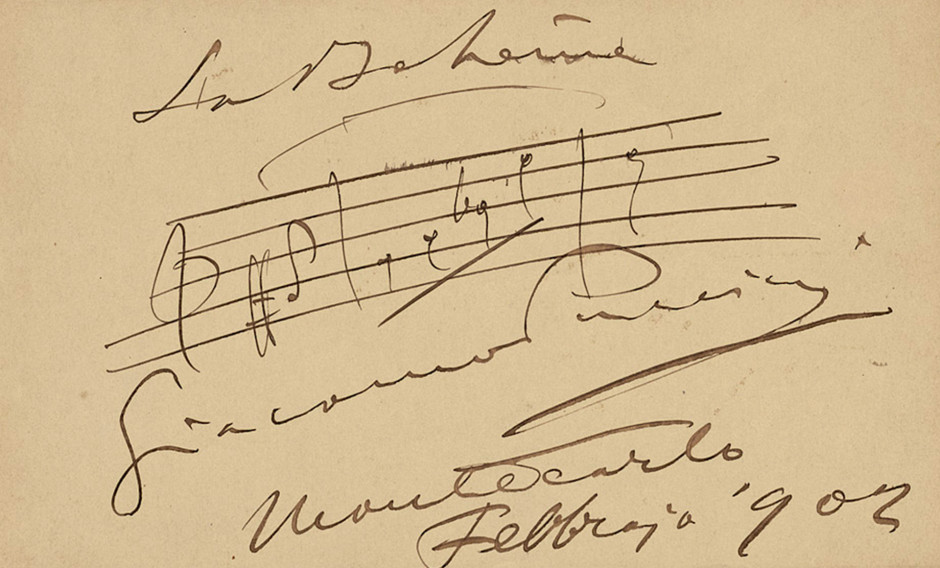 La Bohème
Giacomo Puccini
Montecarlo
Febbrajo '902